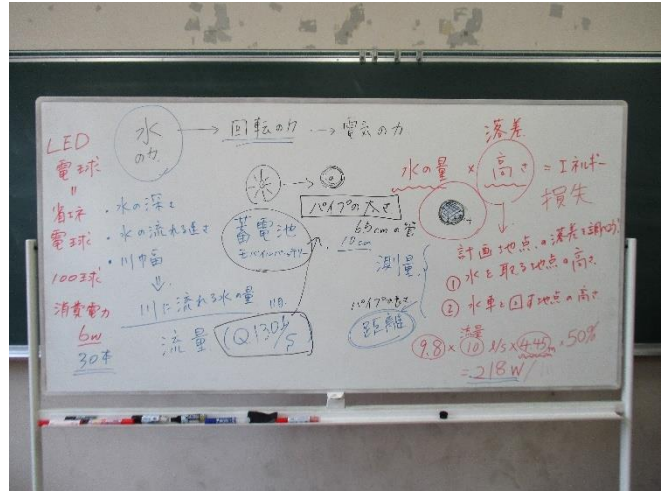 LED
電球
〃
省エネ
電球
100球
消費電力
6W
30本
水
の力
→ 回転の力 → 電気の力
・水の深さ
・水の流れる速さ
・川巾
⇓
川に流れる水の量
流量
蓄電池
モバイルバッテリー
パイプの太さ
10cm
測量
パイプの長さ
距離
落差
水の量 × 高さ = エネルギー
損失
計画地点の落差を測
① 水を取る地点の高さ
② 水車を回す地点の高さ
流量
9.8 × 10 ℓ/s × 4.45m × 50%
= 218W